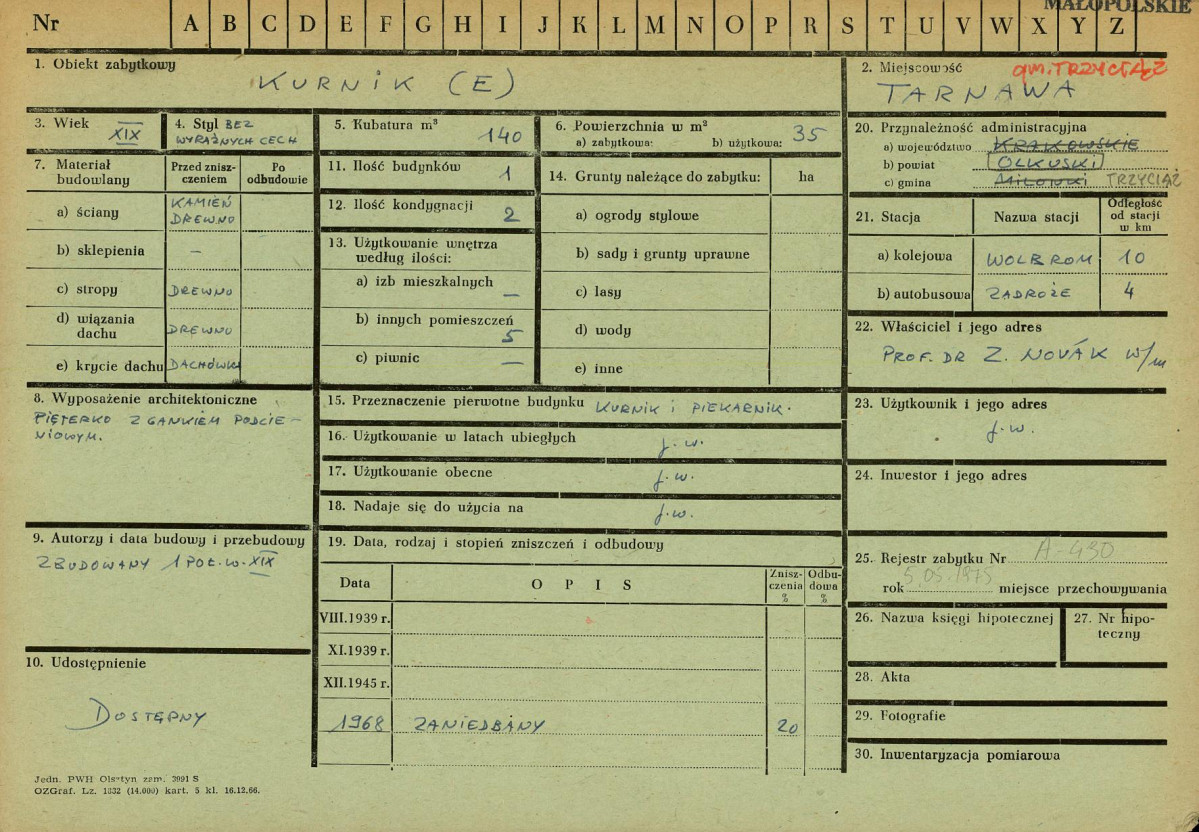 MAŁOPOLSKIE
Nr A B C D E F G H I J K L M N O P R S T U V W X Y Z
1. Obiekt zabytkowy
KURNIK (E)
2. Miejscowość gm. TRZYCIĄŻ
TARNAWA
3. Wiek
XIX
4. Styl BEZ
WYRAŹNYCH CECH
5. Kubatura m³
140
6. Powierzchnia w m²
a) zabytkowa: b) użytkowa: 35
7. Materiał
budowlany
Przed znisz-
czeniem
Po
odbudowie
a) ściany KAMIEŃ
DREWNO
b) sklepienia –
c) stropy DREWNO
d) wiązania
dachu DREWNO
e) krycie dachu DACHÓWKA
8. Wyposażenie architektoniczne
PIĘTERKO Z GANKIEM PODCIE-
NIOWYM.
9. Autorzy i data budowy i przebudowy
ZBUDOWANY 1 POŁ. W. XIX
10. Udostępnienie
DOSTĘPNY
11. Ilość budynków 1
12. Ilość kondygnacji 2
13. Użytkowanie wnętrza
według ilości:
a) izb mieszkalnych –
b) innych pomieszczeń
5
c) piwnic –
14. Grunty należące do zabytku: ha
a) ogrody stylowe
b) sady i grunty uprawne
c) lasy
d) wody
e) inne
15. Przeznaczenie pierwotne budynku KURNIK i PIEKARNIK.
16. Użytkowanie w latach ubiegłych j.w.
17. Użytkowanie obecne j.w.
18. Nadaje się do użycia na j.w.
19. Data, rodzaj i stopień zniszczeń i odbudowy
Data O P I S Znisz-
czenia
% Odbu-
dowa
%
VIII.1939 r.
XI.1939 r.
XII.1945 r.
1968 ZANIEDBANY 20
20. Przynależność administracyjna
a) województwo KRAKOWSKIE
b) powiat OLKUSKI
c) gmina TRZYCIĄŻ
21. Stacja Nazwa stacji Odległość
od stacji
w km
a) kolejowa WOLBROM 10
b) autobusowa ZADROŻE 4
22. Właściciel i jego adres
PROF. DR Z. NOVÁK w/m
23. Użytkownik i jego adres
j.w.
24. Inwestor i jego adres
25. Rejestr zabytku Nr A-430
rok 5.05.1975 miejsce przechowywania
26. Nazwa księgi hipotecznej
27. Nr hipo-
teczny
28. Akta
29. Fotografie
30. Inwentaryzacja pomiarowa
Jedn. PWH Olsztyn zam. 3991 S
OZGraf. Lz. 1332 (14.000) kart. 5 kl. 16.12.66.